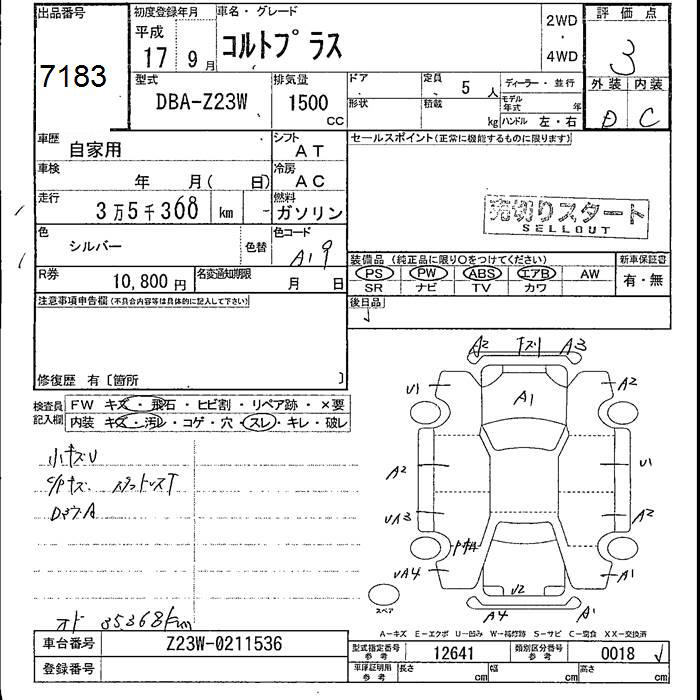 出品番号
7183
初度登録年月
平成
17 9月
車名・グレード
コルトプラス
2WD
・
4WD
評価点
3
外装 内装
D C
型式
DBA-Z23W
排気量
1500
CC
ドア
形状
定員
5 人
積載
kg
ディーラー・並行
モデル年式 年
ハンドル 左・右
車歴
自家用
シフト
AT
車検
年 月( 日)
冷房
AC
走行
3万5千368 km
燃料
ガソリン
色
シルバー
色替
色コード
A19
R券
10,800円
名変通知期限
月 日
セールスポイント(正常に機能するものに限ります)
売切りスタート
SELLOUT
装備品 (純正品に限り○をつけてください)
新車保証書
PS PW ABS エアB AW
有・無
SR ナビ TV カワ
後日品
注意事項申告欄(不具合内容等は具体的に記入して下さい)
修復歴 有〔箇所 〕
検査員記入欄
FW キズ・飛石・ヒビ割・リペア跡・×要
内装 キズ・汚レ・コゲ・穴・スレ・キレ・破レ
小キズU
オド 35368km
A2 A3
U1 A1 A2
A2 U1
A2
A1
U2
A4 A1
スペア
A-キズ E-エクボ U-凹み W-補修跡 S-サビ C-腐食 XX-交換済
車台番号
Z23W-0211536
登録番号
型式指定番号 参考
12641
類別区分番号 参考
0018
車庫証明用 参考
長さ cm 幅 cm 高さ cm